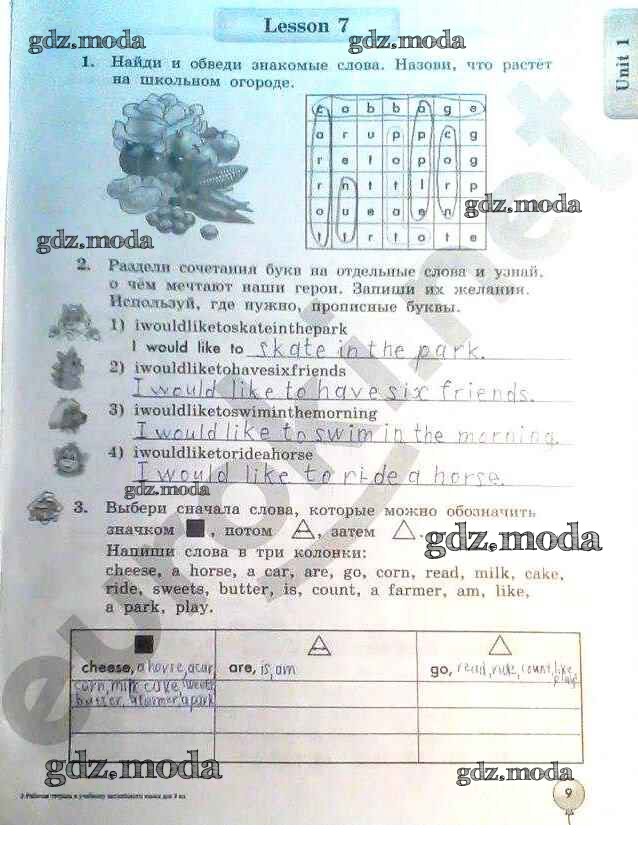 Lesson 7
Unit 1
gdz.moda
gdz.moda
1. Найди и обведи знакомые слова. Назови, что растёт
на школьном огороде.
c a b b a g e
a r u p p c g
r e t o p o g
r n t t l r p
o u e a e n
t t r t o t e
gdz.moda
2. Раздели сочетания букв на отдельные слова и узнай,
о чём мечтают наши герои. Запиши их желания.
Используй, где нужно, прописные буквы.
1) iwouldliketoskateinthepark
I would like to skate in the park.
2) iwouldliketohavesixfriends
I would like to have six friends.
3) iwouldliketoswiminthemorning
I would like to swim in the morning.
4) iwouldliketorideahorse
I would like to ride a horse.
gdz.moda
3. Выбери сначала слова, которые можно обозначить
значком , потом , затем .
gdz.moda
Напиши слова в три колонки:
cheese, a horse, a car, are, go, corn, read, milk, cake,
ride, sweets, butter, is, count, a farmer, am, like,
a park, play.
cheese, a horse, a car,
corn, milk, cake, sweets
butter, a farmer, a park
are, is, am
go, read, ride, count, like
play
gdz.moda
gdz.moda
9
euroki.net